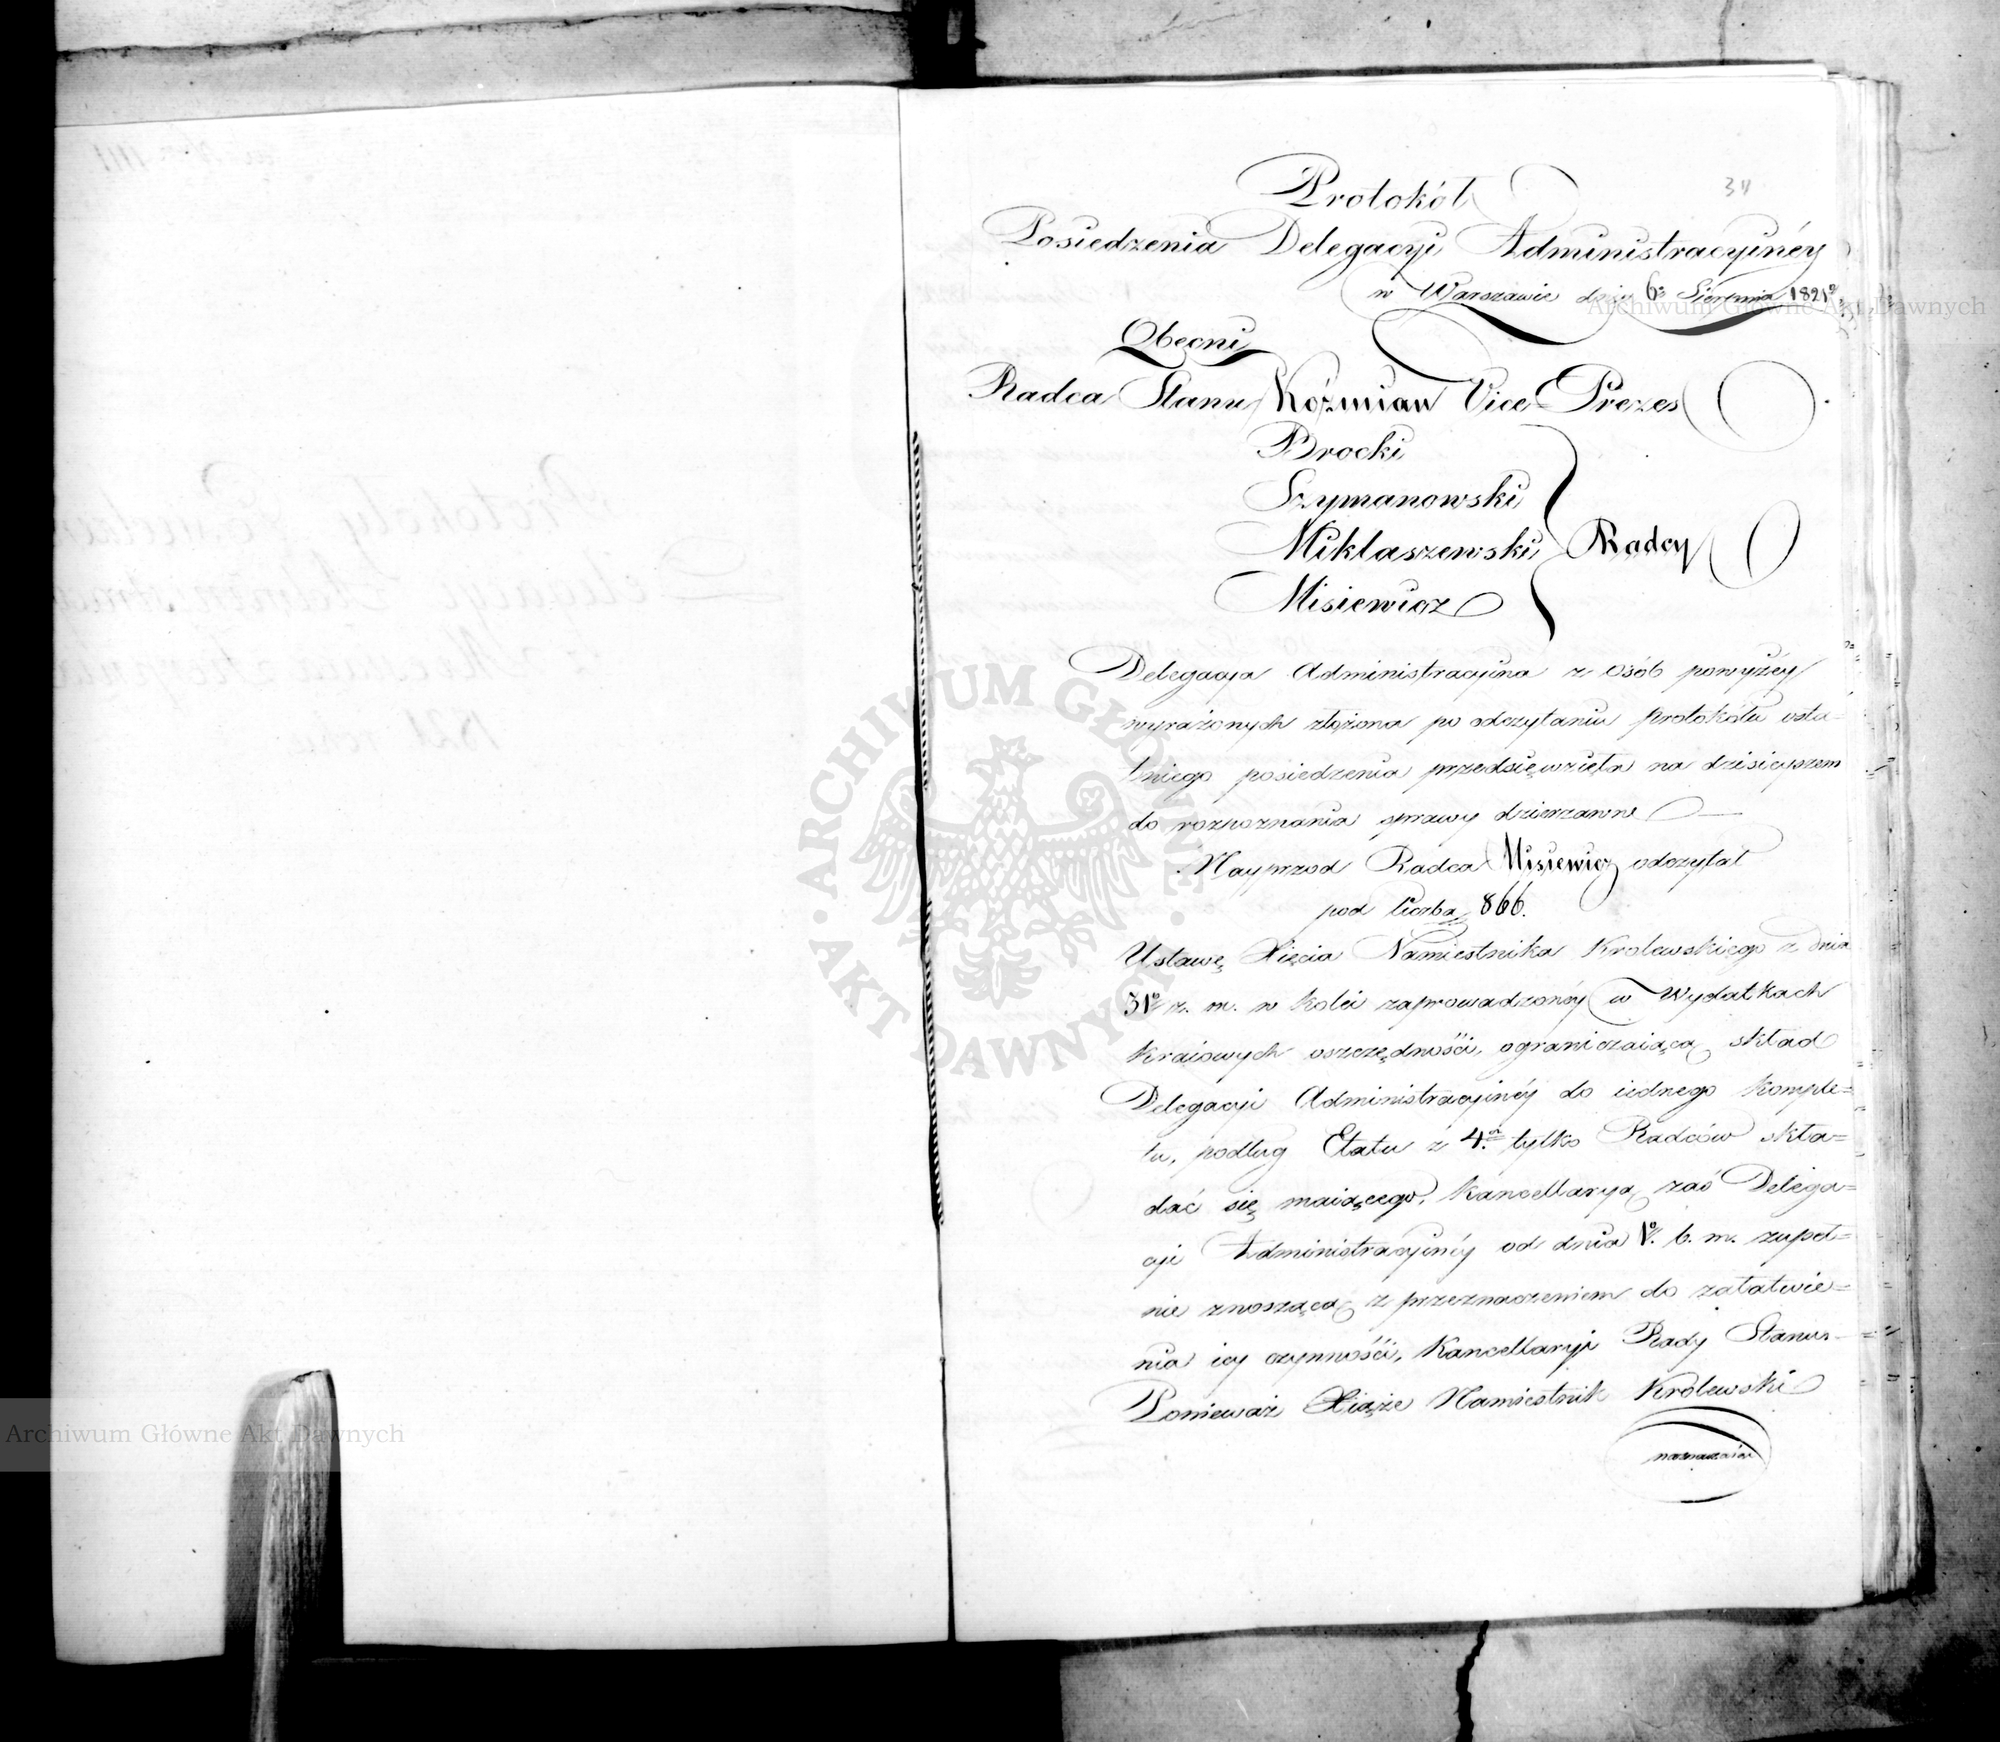 34
Protokół
Posiedzenia Delegacyi Administracyinéy
w Warszawie dnia 6º Sierpnia 1821º
Obecni
Radca Stanu Koźmian Vice-Prezes
Brocki
Szymanowski
Miklaszewski
Radcy
Misiewicz
Delegacya Administracyina z osób powyżéy
wyrażonych złożona po odczytaniu protokółu osta-
tniego posiedzenia przedsięwzięła na dzisieyszem
do rozpoznania sprawy dzierzawne
Nayprzod Radca Misiewicz odczytał
pod liczbą 866.
Ustawę Xięcia Namiestnika Krolewskiego z dnia
31º z. m. w kolei zaprowadzonéy w Wydatkach
kraiowych oszczędności, ograniczaiącą skład
Delegacyi Administracyinéy do iednego komple=
tu, podług Etatu z 4ch tylko Radców skła=
dać się maiącego, kancellaryą zaś Delega=
cyi Administracyinéy od dnia 1º. b. m. zupeł=
nie znoszącą z przeznaczeniem do załatwie=
nia iey czynności, Kancellaryi Rady Stanu-
Ponieważ Xiąże Namiestnik Królewski
Archiwum Główne Akt Dawnych
ARCHIWUM GŁÓWNE · AKT DAWNYCH ·
Archiwum Główne Akt Dawnych